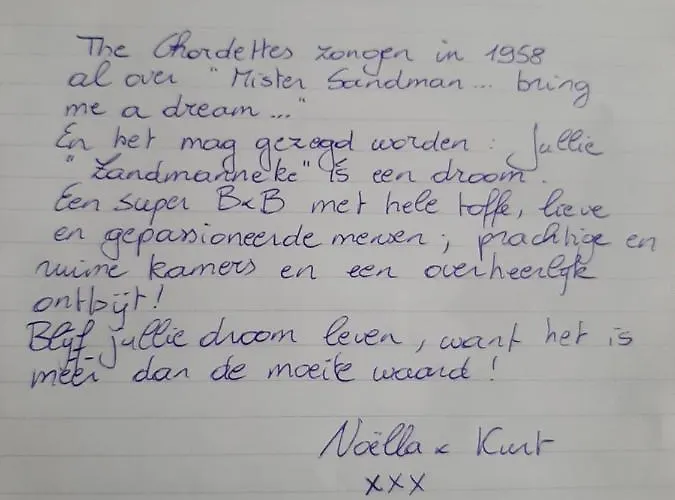 The Chordettes zongen in 1958
al over "Mister Sandman... bring
me a dream..."
En het mag gezegd worden: Jullie
"Zandmanneke" is een droom.
Een super B&B met hele toffe, lieve
en gepassioneerde mensen; prachtige en
ruime kamers en een overheerlijk
ontbijt!
Blijf jullie droom leven, want het is
méér dan de moeite waard!
Noëlla & Kurt
xxx